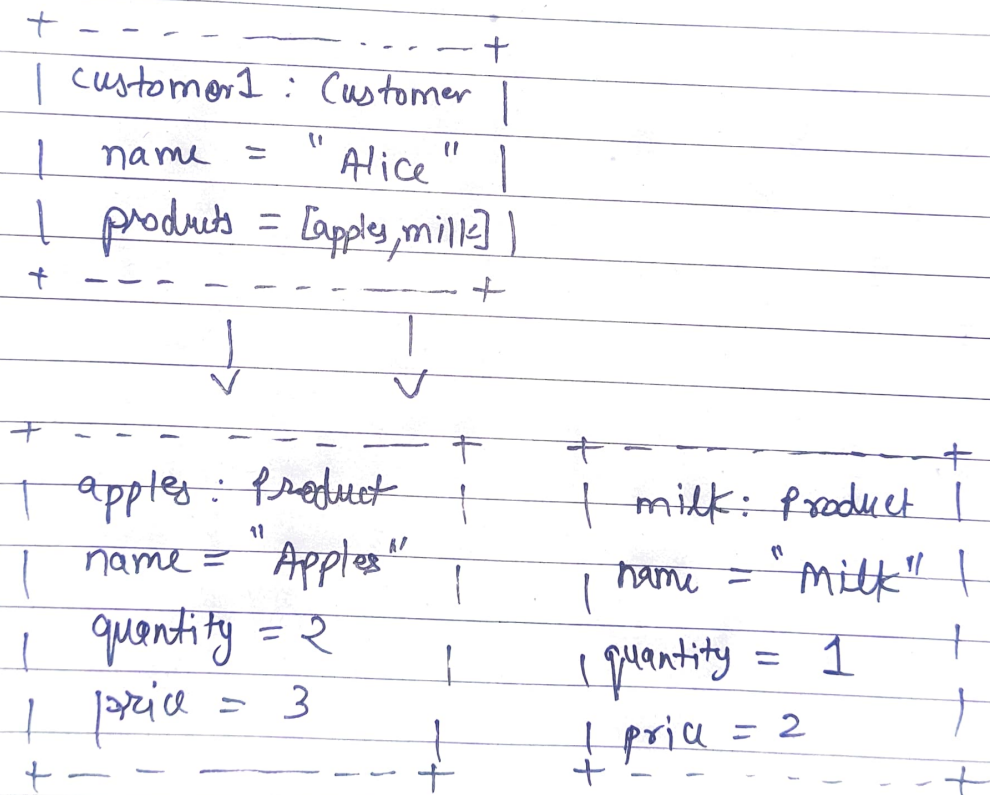 + - - - - —— . . . - — +
| customer1 : Customer |
| name = "Alice" |
| products = [apples,milk] |
+ - - - - - - - - — — +
| |
v v
+ - - - - - - — +
| apples : Product |
| name = "Apples" |
| quantity = 2 |
| price = 3 |
+ — - - —— - - - +
+ — - - —— — +
| milk: Product |
| name = "Milk" |
| quantity = 1 |
| price = 2 |
+ - - - - - - - +